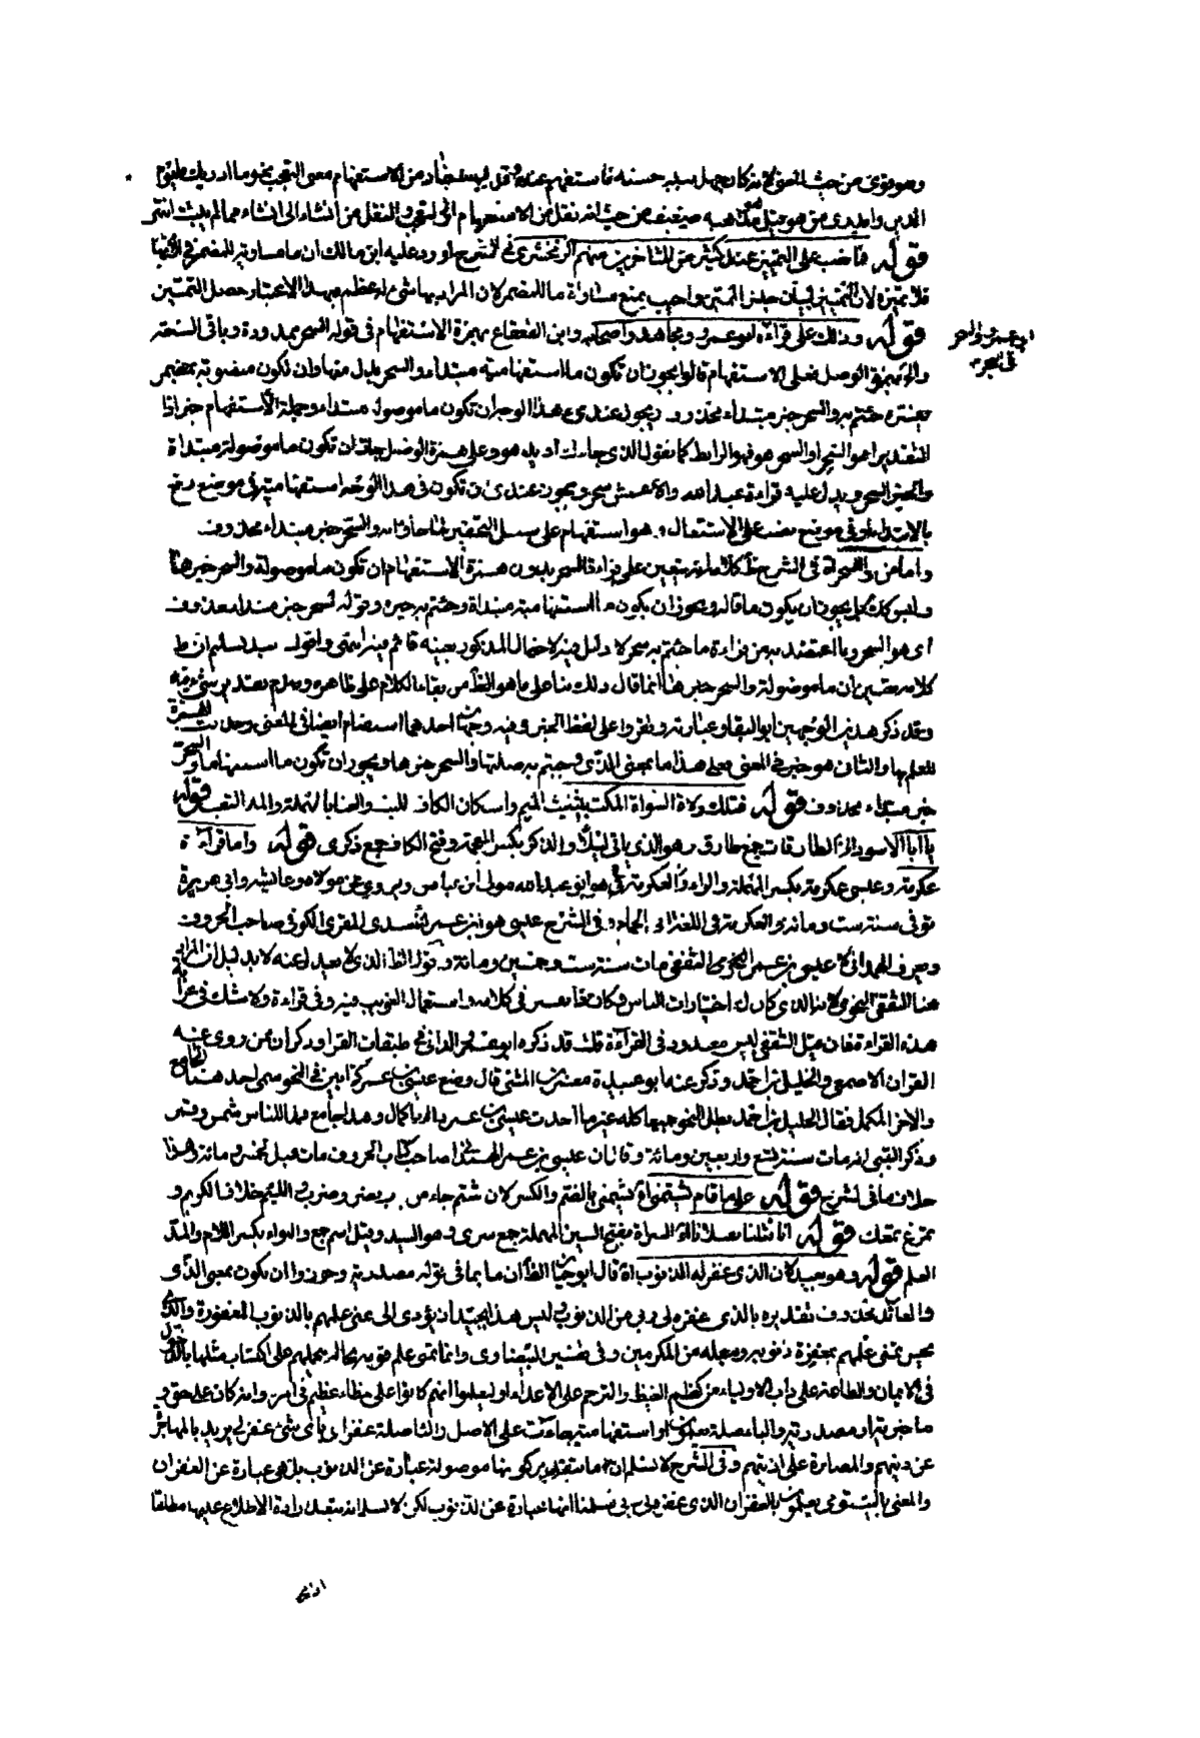 وهو قوى من حيث المعنى لانه كان جهل سبب حسنه فاستفهم عنه وقد يستفاد من الاستفهام معنى التعجب نحو وما ادريك ما يوم
الدين وما ادرى من هو قيل مذهبه ضعيف من حيث انه نقل من الاستفهام الى التعجب والنقل من انشاء الى انشاء مما لم يثبت انتهى
قوله فانتصب على التمييز عند كثير من المتاخرين منهم الزمخشرى فى الشرح اورد عليه ابن مالك ان ما مساوية للمضمر فى الابهام
فلا تميزه لان التمييز لبيان جنس المميز واجيب بمنع مساواة ما للمضمر لان المراد بها شئ له عظم فبهذا الاعتبار حصل التمييز
قوله وذلك على قراءة ابو عمرو ومجاهد واصحابه وابن القعقاع بهمزة الاستفهام فى قوله السحر ممدودة وباقى السبعة
والاء بهمزة الوصل فعلى الاستفهام قالوا يجوز ان تكون ما استفهامية مبتداء والسحر بدل منها وان تكون منصوبة بمضمر
يفسره جئتم به والسحر خبر مبتداء محذوف ويجوز عندى على هذا الوجه ان تكون ما موصولة مبتداء وجملة الاستفهام خبر اذا
التقدير اهو السحر او السحر هو فهو الرابط كما تقول الذى جاءك ازيد هو وعلى همزة الوصل جاز ان تكون ما موصولة مبتداة
والخبر السحر ويدل عليه قراءة عبد الله والاعمش سحر ويجوز عندى ان تكون فى هذا الوجه استفهامية فى موضع رفع
بالابتداء او فى موضع نصب على الاشتغال وهو استفهام على سبيل التحقير لما جاؤا به والسحر خبر مبتداء محذوف
ابو عمرو السحر
واما من والسحر فى الشرح كلامه يتعين على قراءة السحر بدون همزة الاستفهام ان تكون ما موصولة والسحر خبرها
وليس كذلك بل يجوز ان يكون ما قاله ويجوز ان يكون ما استفهامية مبتداة وجئتم به خبره وقوله السحر خبر مبتداء محذوف
اى هو السحر وما اعتضد به من قراءة ما جئتم به سحر لا دليل فيه لاحتمال المذكور بعينه قائم فيه انتهى واقول بعد تسليم ان
كلامه يقتضى ان ما موصولة والسحر خبرها انما قال ذلك بناء على ما هو الظاهر من بقاء الكلام على ظاهره وعدم تقدير شئ فيه
وقد ذكر هذين الوجهين ابو البقاء وعبارته ويقرا على لفظ الخبر وفيه وجهان احدهما استفهام ايضا فى المعنى وحذفت الهمزة
للعلم بها والثانى هو خبر فى المعنى فعلى هذا ما بمعنى الذى وجئتم به صلتها والسحر خبرها ويجوز ان تكون ما استفهاما والسحر
خبر مبتداء محذوف قوله فتلك ولاة السؤاة المكث بتثليث الميم واسكان الكاف اللبث والعناء بالمهملة والمد التعب قوله
يا ابا الاسود الخ الطارقات جمع طارق وهو الذى ياتى ليلا والذكر بكسر المعجمة وفتح الكاف جمع ذكرى قوله واما قراءة
عكرمة وعيسى عكرمة بكسر المهملة والراء هو ابو عبد الله مولى ابن عباس ويروى عن مولاه وعائشة وابى هريرة
توفى سنة ست ومائة والعكرمة فى اللغة الحمامة وفى الشرح عيسى هو ابن عمر الاسدى المقرى الكوفى صاحب الحروف
ويعرف الهمدانى لا عيسى بن عمر النحوى الثقفى مات سنة ست وخمسين ومائة واقول الظاهر الذى لا معدل عنه لابد ليل ان المراد به
هنا الثقفى النحوى لانه الذى كان له اختيارات الناس وكان فى كلامه استعمال الغريب فيه وفى قراءة ولا شك فى غرابة
هذه القراءة فان قيل الثقفى ليس معدود فى القراء قلت قد ذكره ابو عمرو الدانى فى طبقات القراء وذكر ان ممن روى عنه
القران الاصمعى والخليل بن احمد وذكر عنه ابو عبيدة معمر بن المثنى قال وضع عيسى بن عمر كتابين فى النحو سمى احدهما الجامع
والاخر المكمل فقال الخليل بن احمد بطل النحو جميعا كله غير ما احدث عيسى بن عمر ذاك اكمال وهذا جامع فهما للناس شمس وقمر
وذكر القتبى انه مات سنة تسع واربعين ومائة وقال ان عيسى بن عمر الهمدانى صاحب كتاب الحروف مات قبل خمس ومائة وهذا
خلاف ما فى الشرح قوله على ما قام يشتمنى لئيم يشتمنى بالضم والكسر لان شتم جاء من باب نصر وضرب واللئيم خلاف الكريم و
تمرغ تمعك قوله انا قتلنا بقتلانا الخ السراة بفتح السين المهملة جمع سرى وهو السيد وقيل اسم جمع واللواء بكسر اللام والمد
العلم قوله وهو بعيد لان الذى غفر له الذنوب اه قال ابو حيان الظاهر ان ما بما فى قوله مصدرية وجوزوا ان تكون بمعنى الذى
والعائد محذوف تقديره بالذى غفره لى ربى من الذنوب وليس هذا بجيد اذ يؤدى الى تمنى علمهم بالذنوب المغفورة والذى
يحسن تمنى علمهم بمغفرة ذنوبه وجعله من المكرمين وفى تفسير البيضاوى وانما تمنى علم قومه بحاله ليحملهم على اكتساب مثلها بالدخول
فى الايمان والطاعة على داب الاولياء من كظم الغيظ والترحم على الاعداء او ليعلموا انهم كانوا على خطاء عظيم فى امره وانه كان على حق و
ما خبرية او مصدرية والباء صلة يعلمون او استفهامية جاءت على الاصل والباء صلة غفر اى باى شئ غفر لى يريد به المهاجرة
عن دينهم والمصابرة على اذيتهم وفى الشرح لا نسلم ان ما بتقدير كونها موصولة عبارة عن الذنوب بل هى عبارة عن الغفران
والمعنى يا ليت قومى يعلمون بالغفران الذى غفره لى ربى سلمنا انها عبارة عن الذنوب لكن لا نسلم انه يبعد ارادة الاطلاع عليها مطلقا